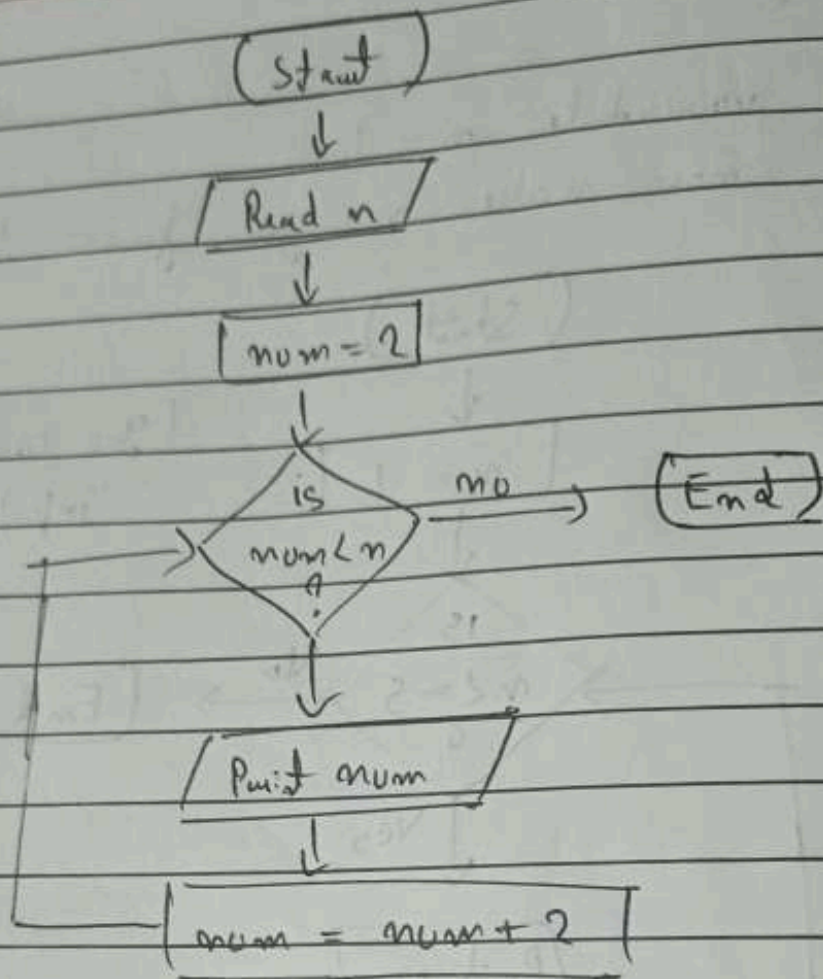 Start
Read n
num = 2
is
num < n
?
no
End
Print num
num = num + 2